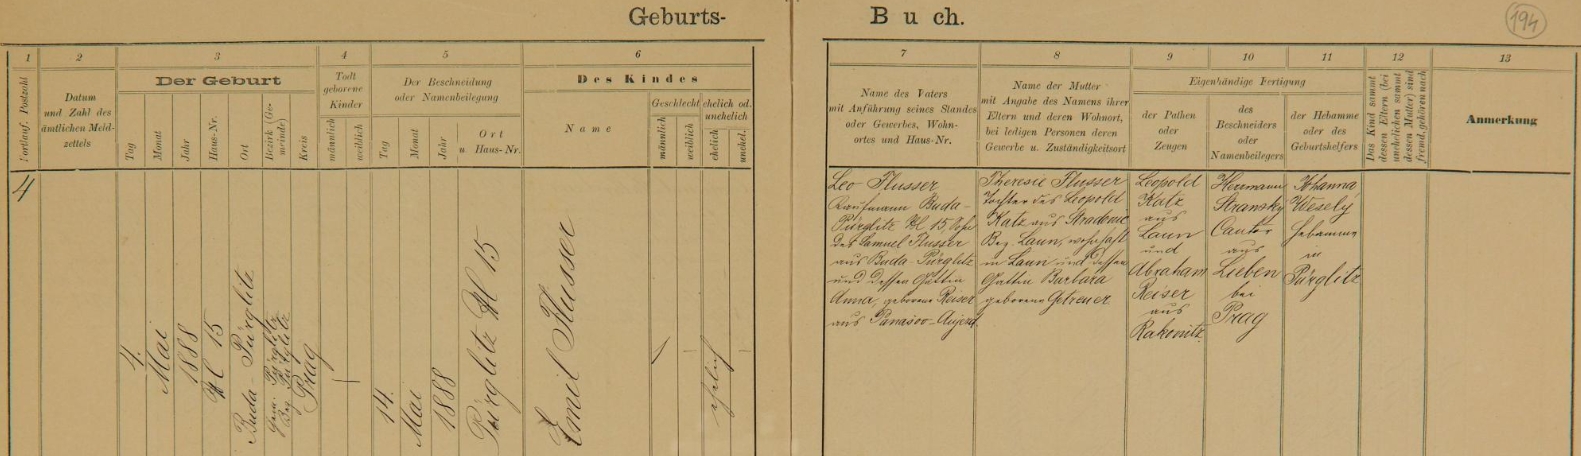 Geburts-
Buch.
194
1
2
3
4
5
6
7
8
9
10
11
12
13
Fortlauf. Postzahl
Datum
und Zahl des
ämtlichen Meld-
zettels
Der Geburt
Tag
Monat
Jahr
Haus-Nr.
Ort
Bezirk (Ge-
meinde)
Kreis
Todt
geborene
Kinder
männlich
weiblich
Der Beschneidung
oder Namenbeilegung
Tag
Monat
Jahr
Ort
u Haus-Nr.
Des Kindes
Name
Geschlecht
männlich
weiblich
ehelich od.
unehelich
ehelich
unehel.
Name des Vaters
mit Anführung seines Standes
oder Gewerbes, Wohn-
ortes und Haus-Nr.
Name der Mutter
mit Angabe des Namens ihrer
Eltern und deren Wohnort,
bei ledigen Personen deren
Gewerbe u. Zuständigkeitsort
Eigenhändige Fertigung
der Pathen
oder
Zeugen
des
Beschneiders
oder
Namenbeilegers
der Hebamme
oder des
Geburtshelfers
Das Kind sammt
dessen Eltern (bei
unehelichen sammt
dessen Mutter) sind
fremd, gehören nach
Anmerkung
4
4.
Mai
1888
Nl 15
Buda-Pürglitz
Gem. Pürglitz
Bez. Pürglitz
Prag
14.
Mai
1888
Pürglitz Nl 15
Emil Flusser
ehelich
Leo Flusser
Kaufmann Buda-
Pürglitz Nl 15, Sohn
des Samuel Flusser
aus Buda-Pürglitz
und dessen Gattin
Anna, geborene Reiser
aus
Theresie Flusser
Tochter des Leopold
Katz aus Stradonic
Bez. Laun, wohnhaft
in Laun und dessen
Gattin Barbara
geborene Getreuer
Leopold
Katz
aus
Laun
und
Abraham
Reiser
aus
Rakonitz
Hermann
Stransky
Cantor
aus
Lieben
bei
Prag
Johanna
Wesely
Hebamme
in
Pürglitz